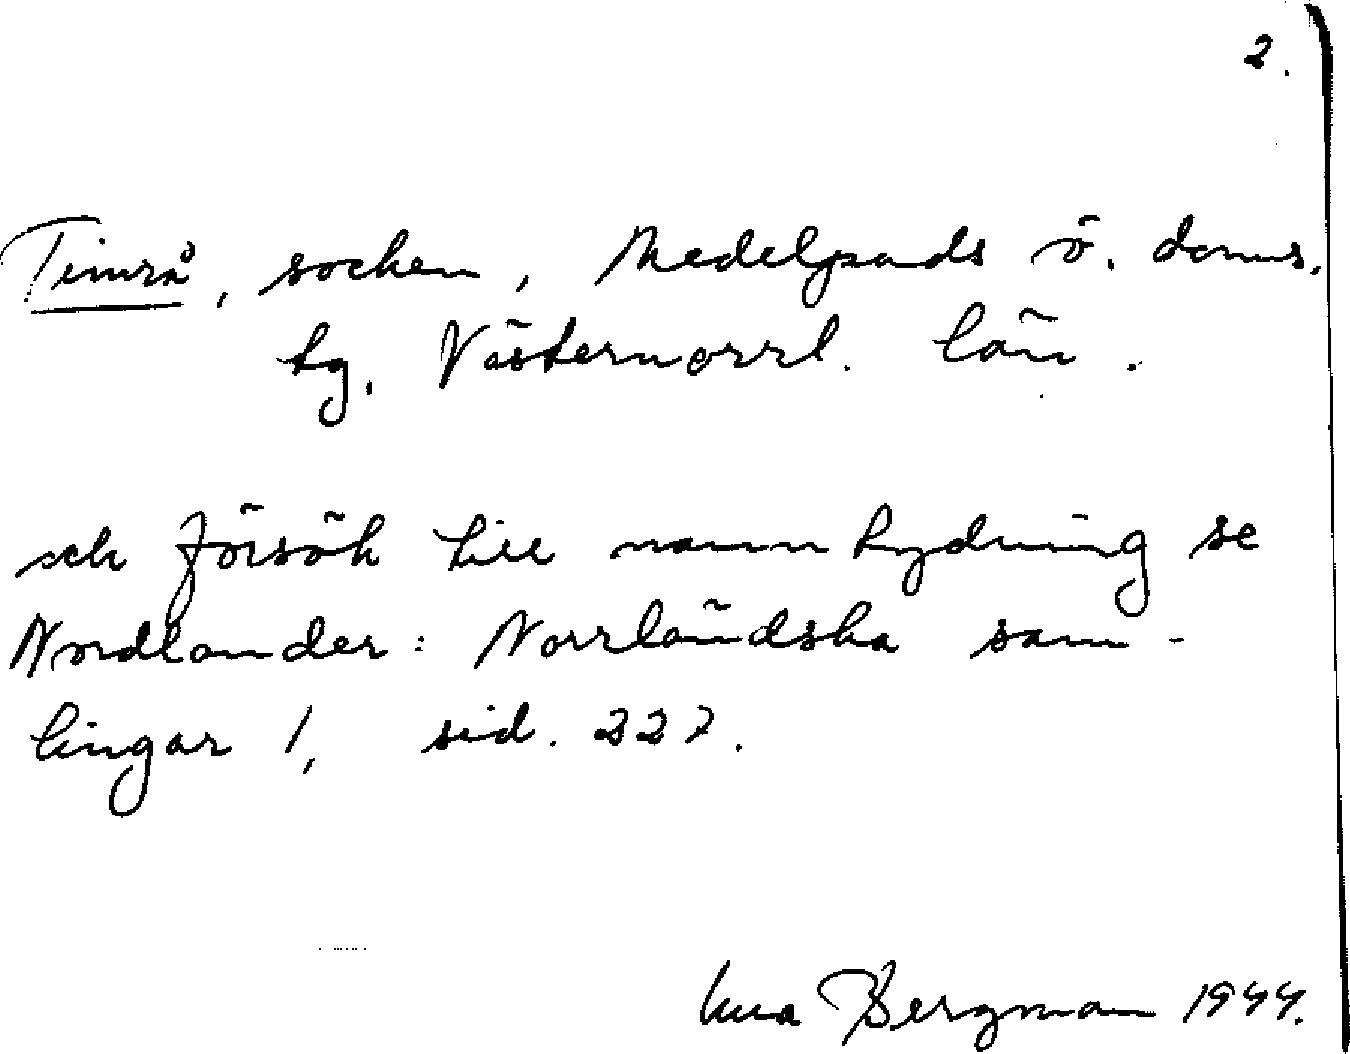 2.
Timrå, socken, Medelpads ö. doms.
tg. Västernorrl. län.
och försök till namntydning se
Nordlander: Norrländska sam-
lingar 1, sid. 227.
Bergman 1944.